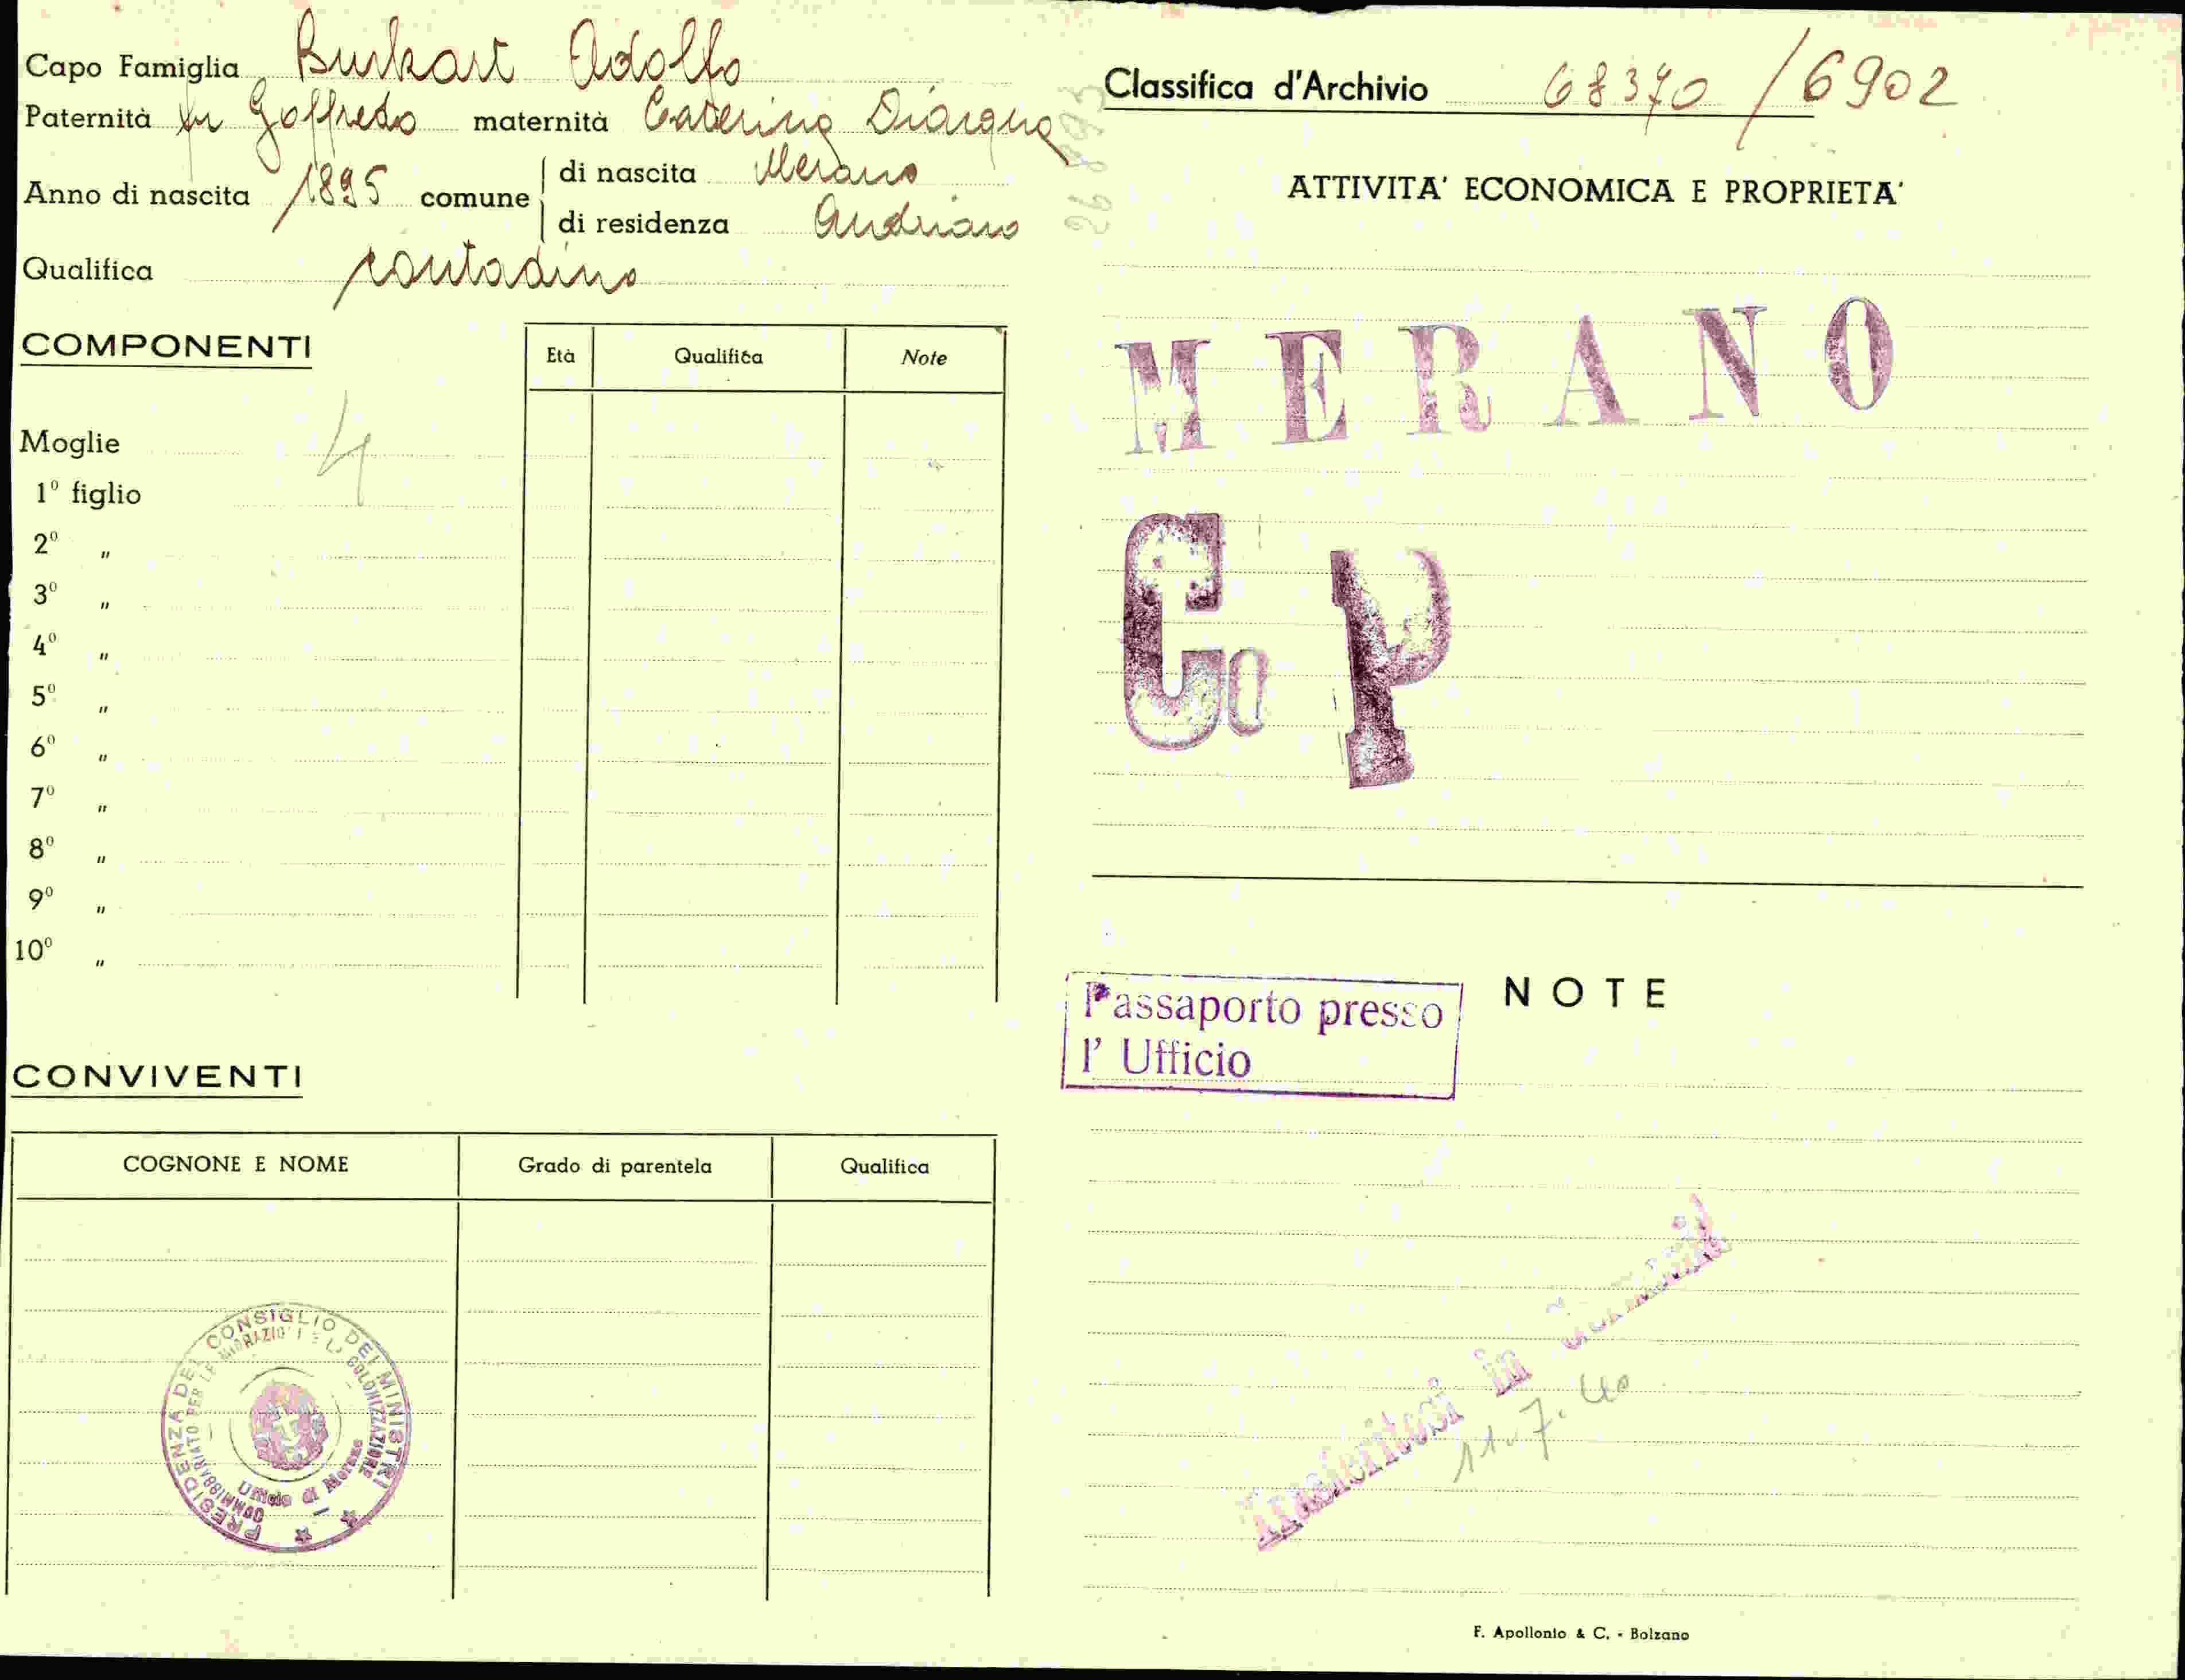 Capo Famiglia Burkart Adolfo
Paternità fu Goffredo maternità Caterina
Anno di nascita 1895 comune di nascita Merano
di residenza Andriano
Qualifica contadino
COMPONENTI
Età Qualifica Note
4
Moglie
1º figlio
2º "
3º "
4º "
5º "
6º "
7º "
8º "
9º "
10º "
CONVIVENTI
COGNONE E NOME Grado di parentela Qualifica
PRESIDENZA DEL CONSIGLIO DEI MINISTRI
COMMISSARIATO PER LE MIGRAZIONI E LA COLONIZZAZIONE
Ufficio di Merano
Classifica d'Archivio 68370 / 6902
ATTIVITA' ECONOMICA E PROPRIETA'
MERANO
Co P
NOTE
Passaporto presso
l' Ufficio
Trasferitosi in
11.7.40
F. Apollonio & C. - Bolzano